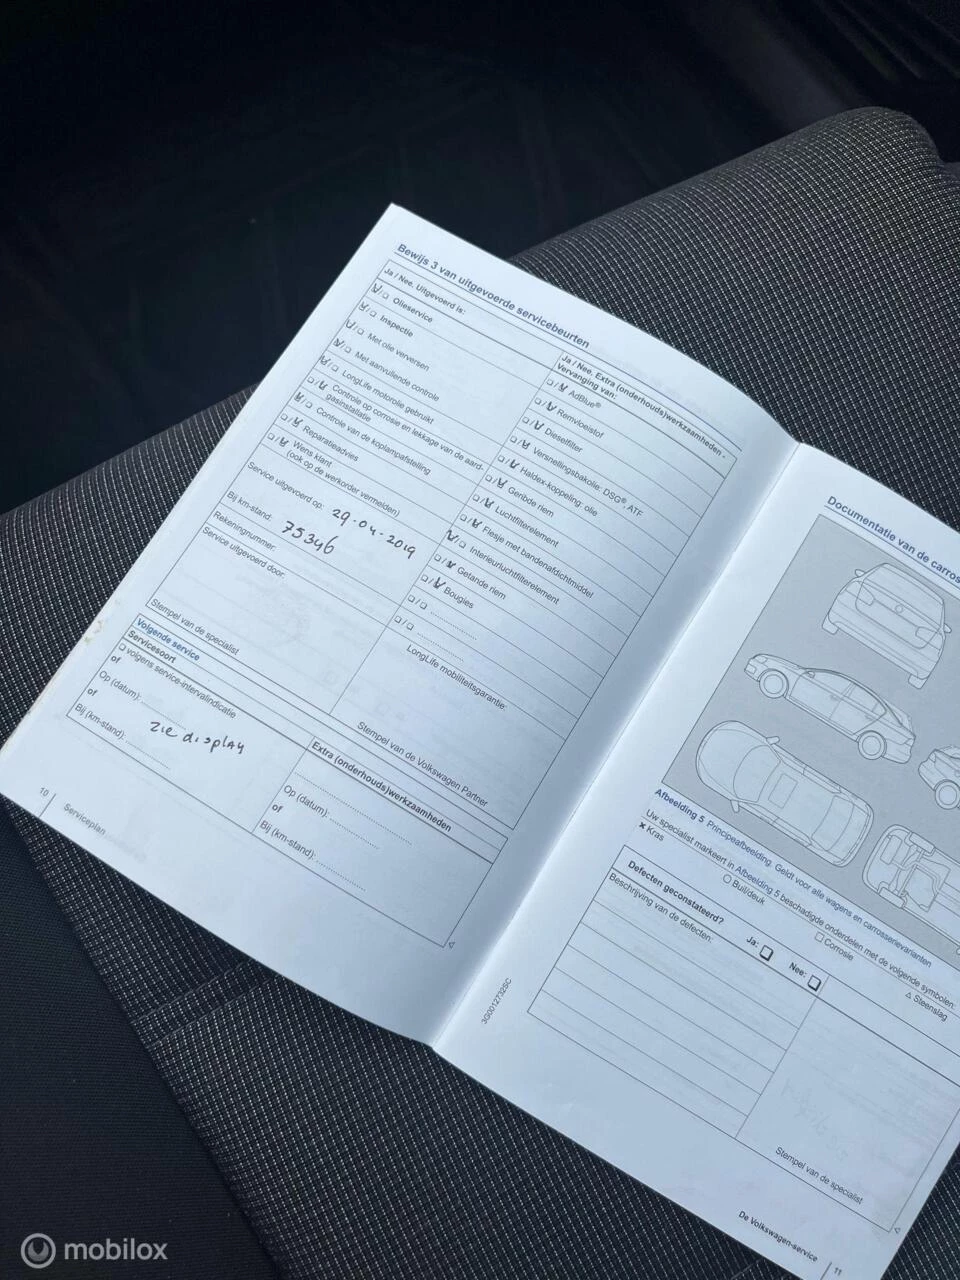 Bewijs 3 van uitgevoerde servicebeurten
Ja / Nee. Uitgevoerd is:
Olieservice
Inspectie
Met olie verversen
Met aanvullende controle
LongLife motorolie gebruikt
Controle op corrosie en lekkage van de aard-
gasinstallatie
Controle van de koplampafstelling
Reparatieadvies
Wens klant
(ook op de werkorder vermelden)
Service uitgevoerd op: 29-04-2019
Bij km-stand: 75346
Rekeningnummer:
Service uitgevoerd door:
Stempel van de specialist
Ja / Nee. Extra (onderhouds)werkzaamheden -
Vervanging van:
AdBlue®
Remvloeistof
Dieselfilter
Versnellingsbakolie: DSG®, ATF
Haldex-koppeling: olie
Geribde riem
Luchtfilterelement
Flesje met bandenafdichtmiddel
Interieurluchtfilterelement
Getande riem
Bougies
LongLife mobiliteitsgarantie:
Stempel van de Volkswagen Partner
Volgende service
Servicesoort
volgens service-intervalindicatie
of
Op (datum):
of
zie display
Bij (km-stand):
Extra (onderhouds)werkzaamheden
Op (datum):
of
Bij (km-stand):
10
Serviceplan
Documentatie van de carros
Afbeelding 5 Principeafbeelding. Geldt voor alle wagens en carrosserievarianten
Uw specialist markeert in Afbeelding 5 beschadigde onderdelen met de volgende symbolen:
x Kras
Buil/deuk
Corrosie
Steenslag
Defecten geconstateerd?
Ja:
Nee:
Beschrijving van de defecten:
Stempel van de specialist
3G0012732SC
De Volkswagen-service
11
mobilox